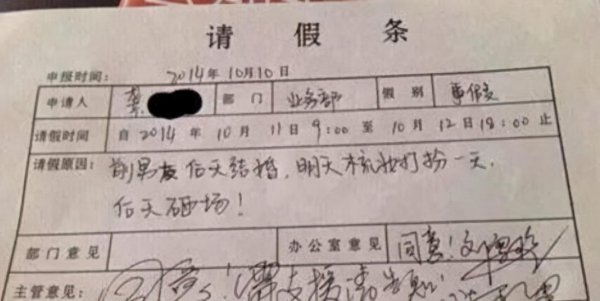 请假条
申报时间: 2014年10月10日
申请人 部门 业务部 假别 事假
请假时间 自2014年10月11日9:00至10月12日18:00止
请假原因: 前男友后天结婚,明天梳妆打扮一天,
后天砸场!
部门意见 办公室意见 同意!
主管意见: